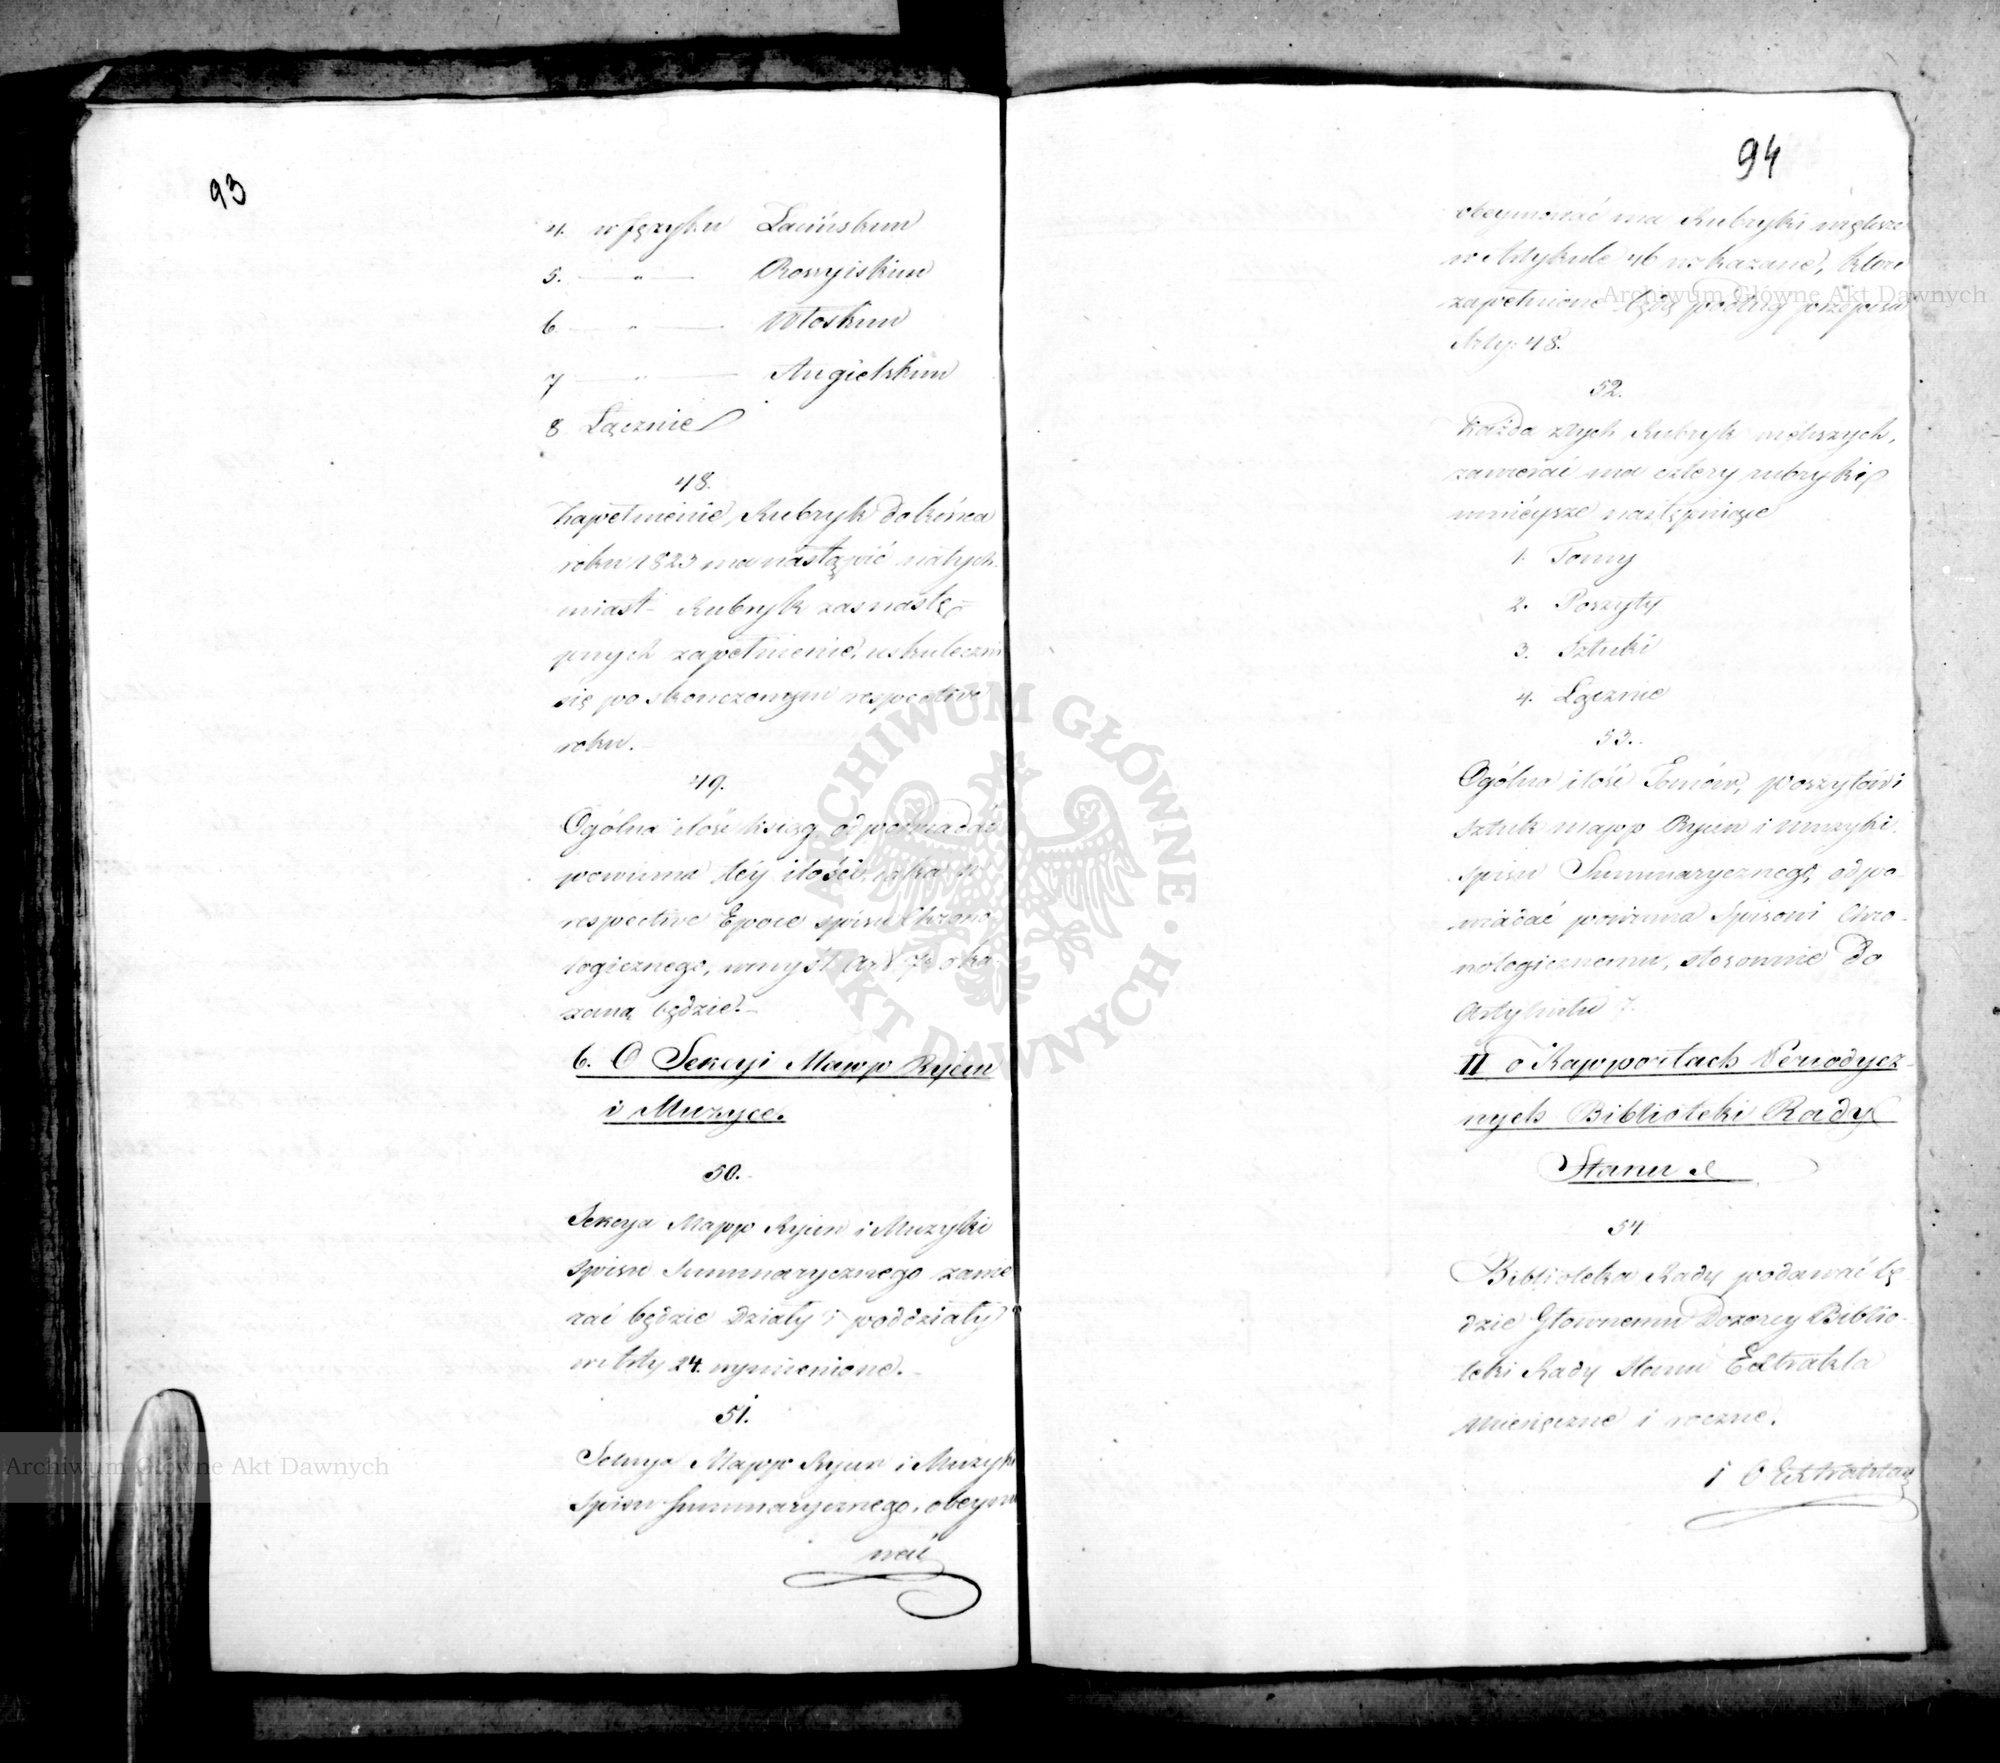 93
4. w Języku Łacińskim
5. — „ — Rossyiskim
6. — „ — Włoskim
7 — „ — Angielskim
8 Łącznie
48.
Zapełnienie Rubryk do końca
roku 1823 ma nastąpić natych
miast Rubryk zas nastę-
pnych zapełnienie, uskuteczni
się po skonczonym respective
roku.
49.
Ogólna ilość ksiąg odpowiadać
powinna téy ilości, iaka w
respective Epoce spisu Chrono-
logicznego, w myśl Art. 7 oka-
zana będzie.
6. O Sekcyi Mapp Rycin
i Muzyce.
50.
Sekcya Mapp Rycin i Muzyki
Spisu Summarycznego zawie
rać będzie Działy i poddziały
w Arty 24. wymienione.
51.
Sekcya Mapp Rycin i Muzyki
Spisu Summarycznego, obeymo
wać
94
obeymować ma Rubryki większe
w Artykule 46 wskazane, które
zapełnione będą podług przepisu
Arty: 48.
52.
Każda z tych Rubryk większych,
zawierać ma cztery rubryki
mnieysze następuiące
1. Tomy
2. Poszyty
3. Sztuki
4. Łącznie
53.
Ogólna ilość Tomów, poszytów i
Sztuk mapp Rycin i muzyki
Spisu Summarycznego, odpo-
wiadać powinna Spisowi Chro-
nologicznemu, stosownie do
Artykułu 7.
II o Rapportach Peryodycz-
nych Biblioteki Rady
Stanu
54.
Biblioteka Rady podawać bę-
dzie Głownemu Dozorcy Biblio-
teki Rady Stanu Extrakta
Miesięczne i roczne.
i O Extraktach
Archiwum Główne Akt Dawnych
Archiwum Główne Akt Dawnych
ARCHIWUM GŁÓWNE AKT DAWNYCH